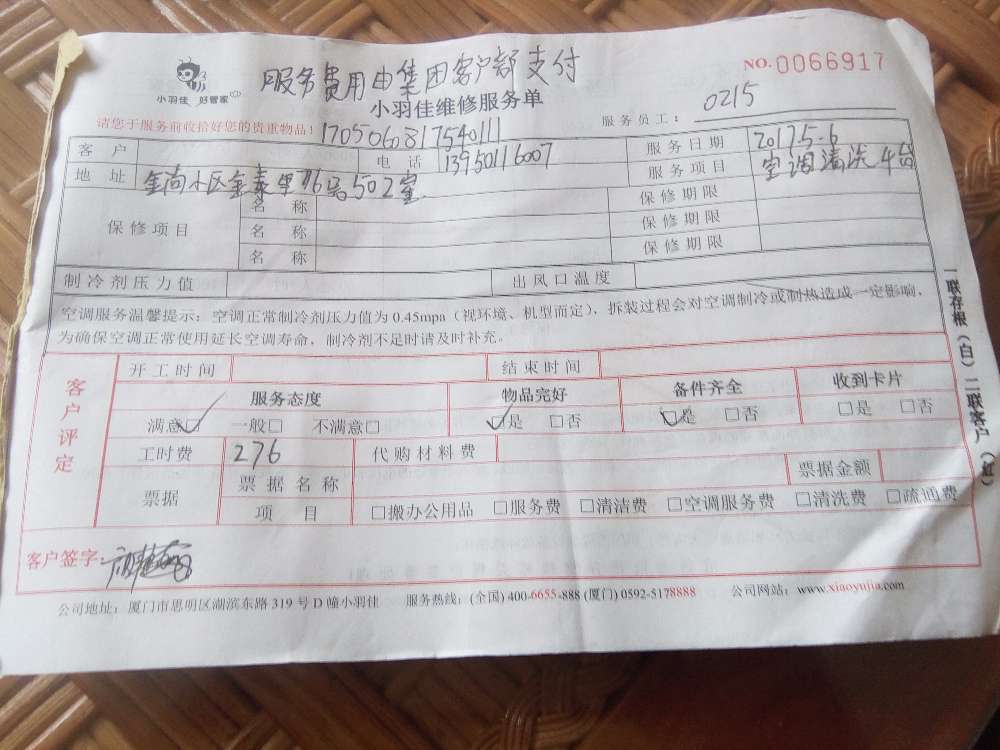 服务费用由集团客户部支付
NO.0066917
小羽佳 好管家
小羽佳维修服务单
请您于服务前收拾好您的贵重物品!
服务员工: 0215
1705060817540111
客户 电话 13950116007 服务日期 2017.5.6
地址 金尚小区金泰里76号502室 服务项目 空调清洗4台
保修项目 名称 保修期限
名称 保修期限
名称 保修期限
制冷剂压力值 出风口温度
空调服务温馨提示:空调正常制冷剂压力值为0.45mpa(视环境、机型而定),拆装过程会对空调制冷或制热造成一定影响,
为确保空调正常使用延长空调寿命,制冷剂不足时请及时补充。
一联存根(白)二联客户(红)
客户评定
开工时间 结束时间
服务态度 物品完好 备件齐全 收到卡片
满意☑ 一般□ 不满意□ ☑是 □否 ☑是 □否 □是 □否
工时费 276 代购材料费
票据 票据名称 票据金额
项目 □搬办公用品 □服务费 □清洁费 □空调服务费 □清洗费 □疏通费
客户签字:
公司地址:厦门市思明区湖滨东路319号D幢小羽佳 服务热线:(全国)400-6655-888(厦门)0592-5178888 公司网站:www.xiaoyujia.com